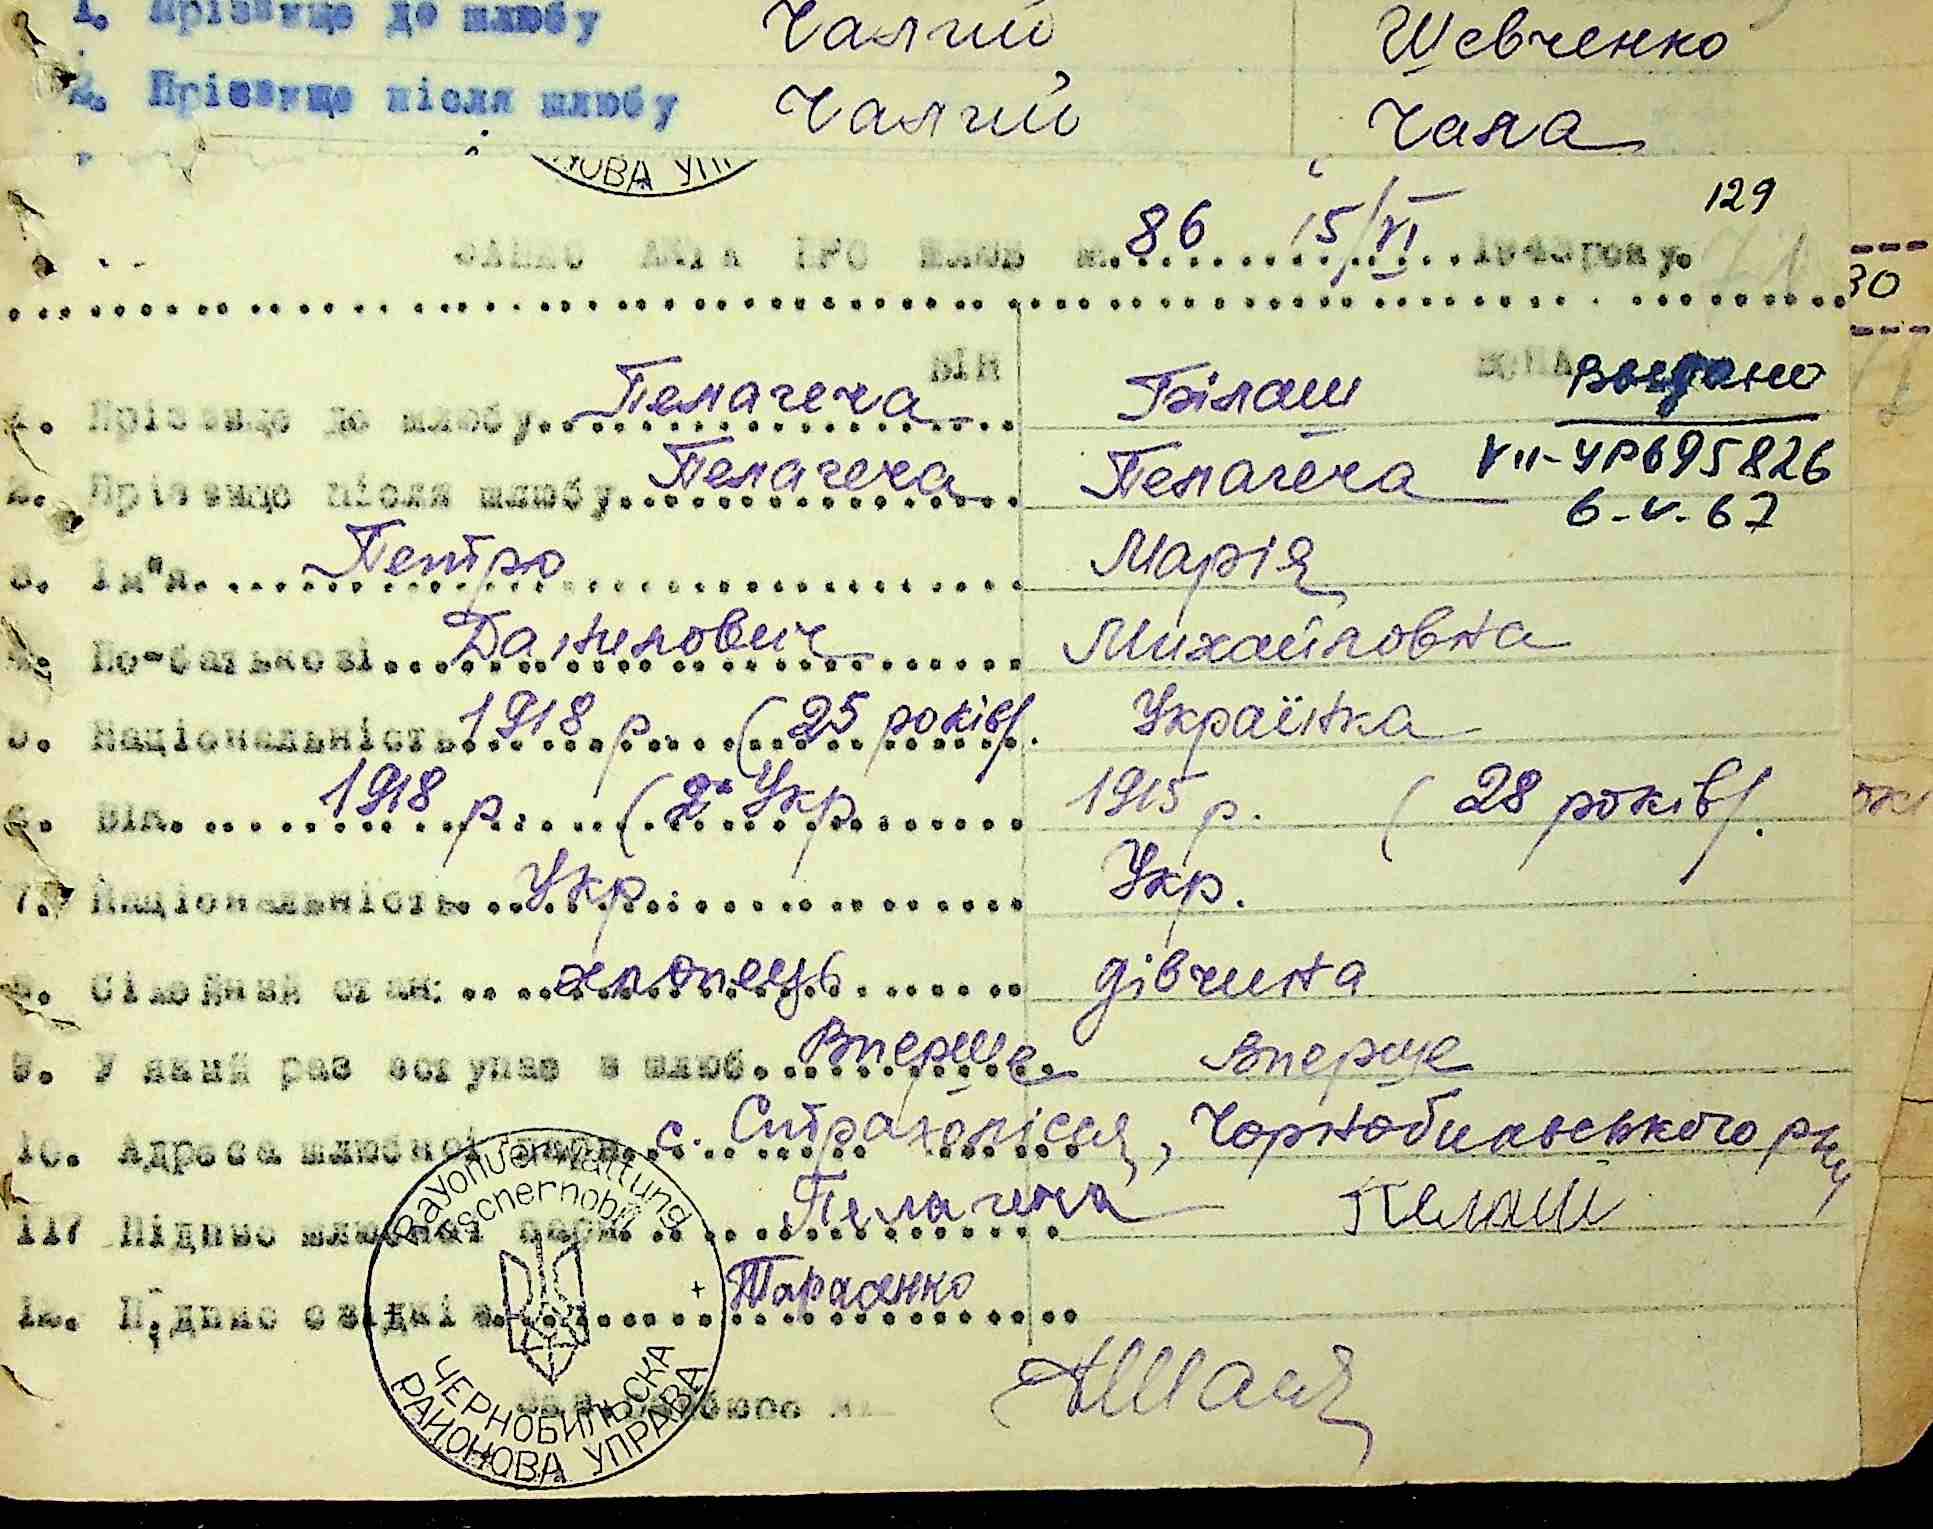 1. Прізвище до шлюбу Чалий Шевченко
2. Прізвище після шлюбу Чалий Чала
ОВА УП
129
АКТ ПРО ШЛЮБ №. 86 15/VI 1943 року.
30
він вона Выдано
1. Прізвище до шлюбу Пелагеча Білаш
VII-УР 695826
2. Прізвище після шлюбу Пелагеча Пелагеча
6-V-67
3. Ім"я Петро Марія
4. По-батькові Данилович Михайловна
5. Національність 1918 р. (25 років). Українка
6. Вік 1918 р. (2 Укр 1915 р. (28 років).
7. Національність Укр. Укр.
8. Сімейний стан: хлопець дівчина
9. У який раз вступає в шлюб Вперше Вперше
10. Адреса шлюбної пари с. Страхолісся, Чорнобильського р-ну
11? Підпис шлюбної пари Пелагеча
12. Підпис свідків Тарасенко
Rayonverwaltung
Tschernobil
ЧЕРНОБИЛЬСЬКА
РАЙОНОВА УПРАВА